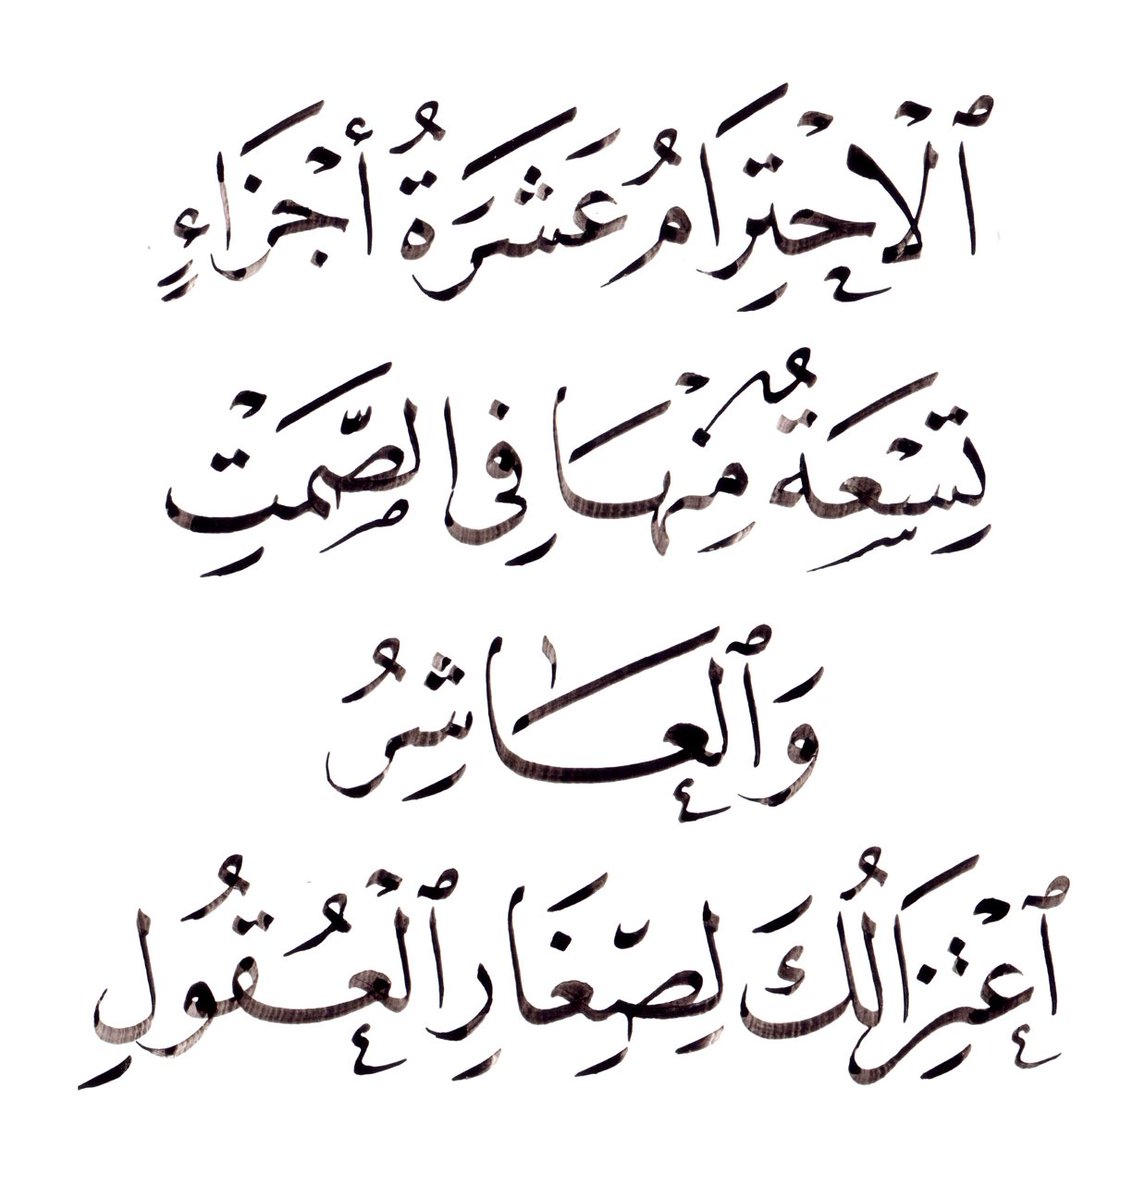 ٱلْاِحْتِرَامُ عَشَرَةُ أَجْزَاءٍ
تِسْعَةٌ مِنْهَا فِي الصَّمْتِ
وَٱلْعَاشِرُ
ٱعْتِزَالُكَ لِصِّغَارِ ٱلْعُقُولِ